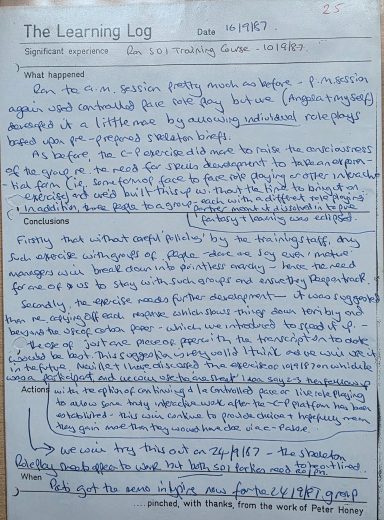 25
The Learning Log Date 16/9/87
Significant experience Ran SO1 Training Course - 10/9/87.
What happened
Ran the a.m. session pretty much as before - p.m. session
again used controlled pace role play but we (Angela & myself)
developed it a little more by allowing individual role plays
based upon pre-prepared skeleton briefs.
As before, the C-P exercise did more to raise the consciousness
of the group re. the need for skills development to take an experien-
tial form (ie. some form of face to face role playing or other interactive
exercise) and we'd built this up without the time to bring it on
In addition, three people to a group, each with a different role playing
partner meant it dissolved in to pure
fantasy & learning was eclipsed.
Conclusions
Firstly that without careful 'policing' by the training staff, any
such exercise with groups of people - dare we say even 'mature
managers will break down into pointless anarchy - hence the need
for one of us to stay with such groups and ensure they keep on track.
Secondly, the exercise needs further development - it was suggested
than re-copying off each response which slows things down terribly and
beyond the use of carbon paper - which we introduced to speed it up -
the use of just one piece of paper with the transcription to date
would be best. This suggestion is very valid I think and we will use it
in future. Neil & I have discussed the exercise of 10/9/87 on which he
was a participant and we
Actions with the option of continuing a la controlled pace or live role playing
to allow some truly interactive work after the C-P platform has been
established - this will continue to provide choice & hopefully mean
they gain more than they would have done via c-pace.
we will try this out on 24/9/87 - the skeleton
Role play needs to appear to work but both
When Peter got the memo in before now for the 24/9/87 group
.... pinched, with thanks, from the work of Peter Honey